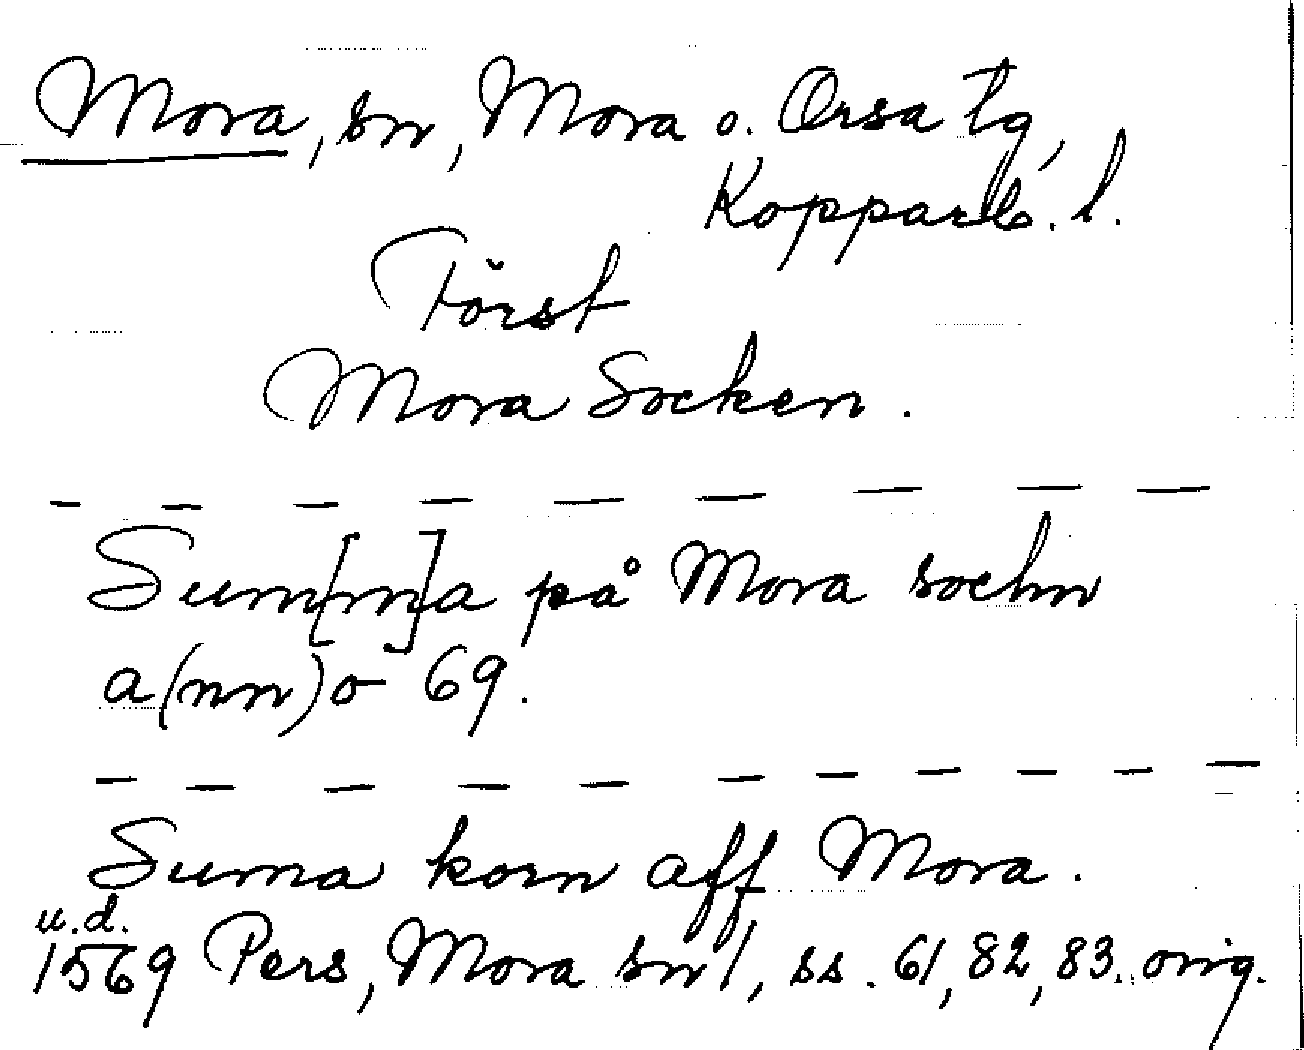 Mora, sn, Mora o. Orsa tg,
Kopparb. l.
Först
Mora Socken.
Sum[m]a på Mora sochn
a(nn)o 69.
Suma korn aff Mora.
u.d.
1569 Pers, Mora sn 1, ss. 61, 82, 83. orig.